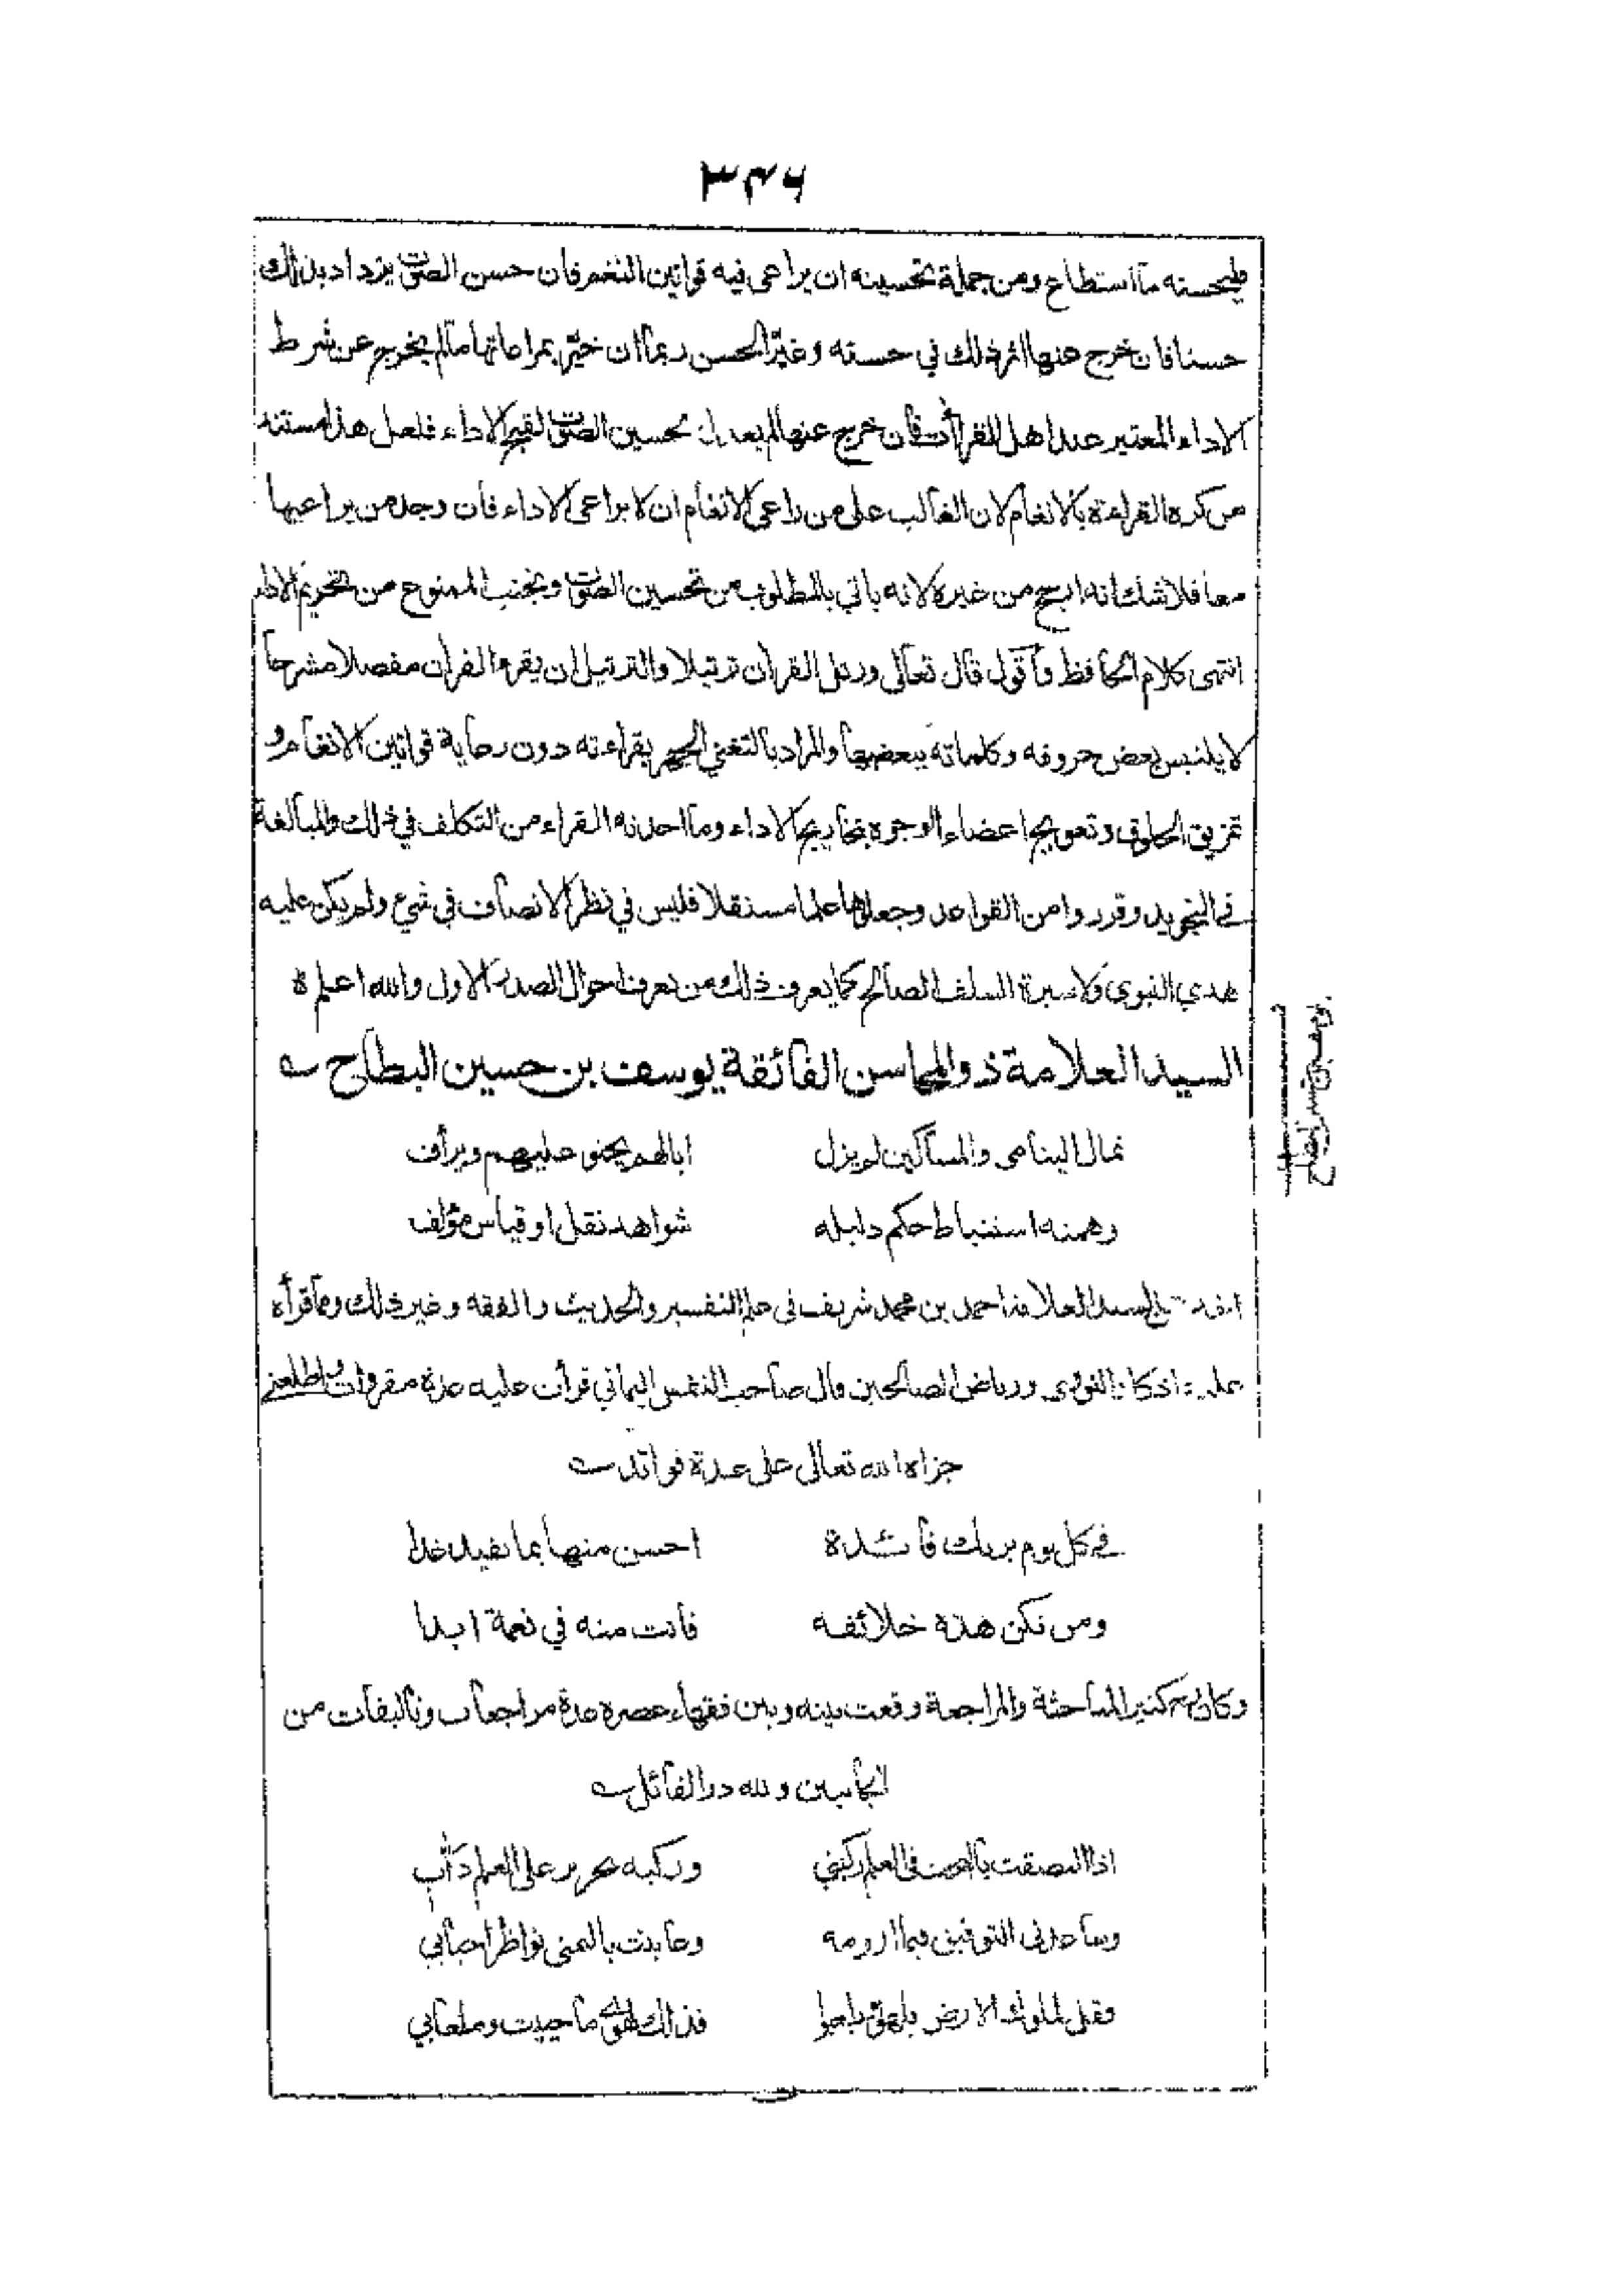 ٣٤٦
فليحسنه ما استطاع ومن جملة تحسينه ان يراعى فيه قوانين النغم فان حسن الصوت يزداد بذلك
حسنا فان خرج عنها اثر ذلك في حسنه وغير الحسن ربما ان خير بمراعاتها مالم يخرج عن شرط
الاداء المعتبر عند اهل القرأت فان خرج عنها لم يعد ان تحسين الصوت لقبح الاداء فلعل هذا مستند
من كره القراءة بالانغام لان الغالب على من راعى الانغام ان لا يراعى الاداء فان وجد من يراعيها
معا فلا شك انه ارجح من غيره لانه ياتي بالمطلوب من تحسين الصوت ويجتنب الممنوع من
انتهى كلام الحافظ واقول قال تعالى ورتل القران ترتيلا والترتيل ان يقرء القران مفصلا مشرحا
لا يلتبس بعض حروفه وكلماته ببعضها والمراد بالتغني الجهر بقراءته دون رعاية قوانين الانغام و
تمزيق الحلوق وتعويج اعضاء الوجوه بمخاريج الاداء وما احدثه القراء من التكلف في ذلك والمبالغة
في التجويد وقرروا من القواعد وجعلوها علما مستقلا فليس في نظر الانصاف في شيء ولم يكن عليه
هدي النبوي ولا سيرة السلف الصالح كما يعرف ذلك من يعرف احوال الصدر الاول والله اعلم ه
السيد العلامة ذو المحاسن الفائقة يوسف بن حسين البطاح
ثمال اليتامى والمساكين لم يزل ابا لهم يحنو عليهم ويرأف
وهمته استنباط حكم دليله شواهد نقل او قياس مؤلف
السيد العلامة احمد بن محمد شريف في علم التفسير والحديث والفقه وغير ذلك ومما قرأه
عليه اذكار النووى ورياض الصالحين قال صاحب النفس اليماني قرأت عليه عدة مقروات واطلعني
جزاه الله تعالى على عدة فوائد
في كل يوم يريك فائدة احسن منها بما تفيد غدا
ومن تكن هذه خلائقه فانت منه في نعمة ابدا
وكان كثير المباحثة والمراجعة وقعت بينه وبين فقهاء عصره عدة مراجعات وتاليفات من
الجانبين ولله در القائل
اذا التصقت بالبحث في العلم ركبتي وركبة تحرير على العلم دأب
وساعدنى التوفيق فيما ارومه وعاينت باليمنى نواظر احبابي
فقل لملوك الارض يلهوا ويلعبوا فذلك لهوى ما حييت وملعابي